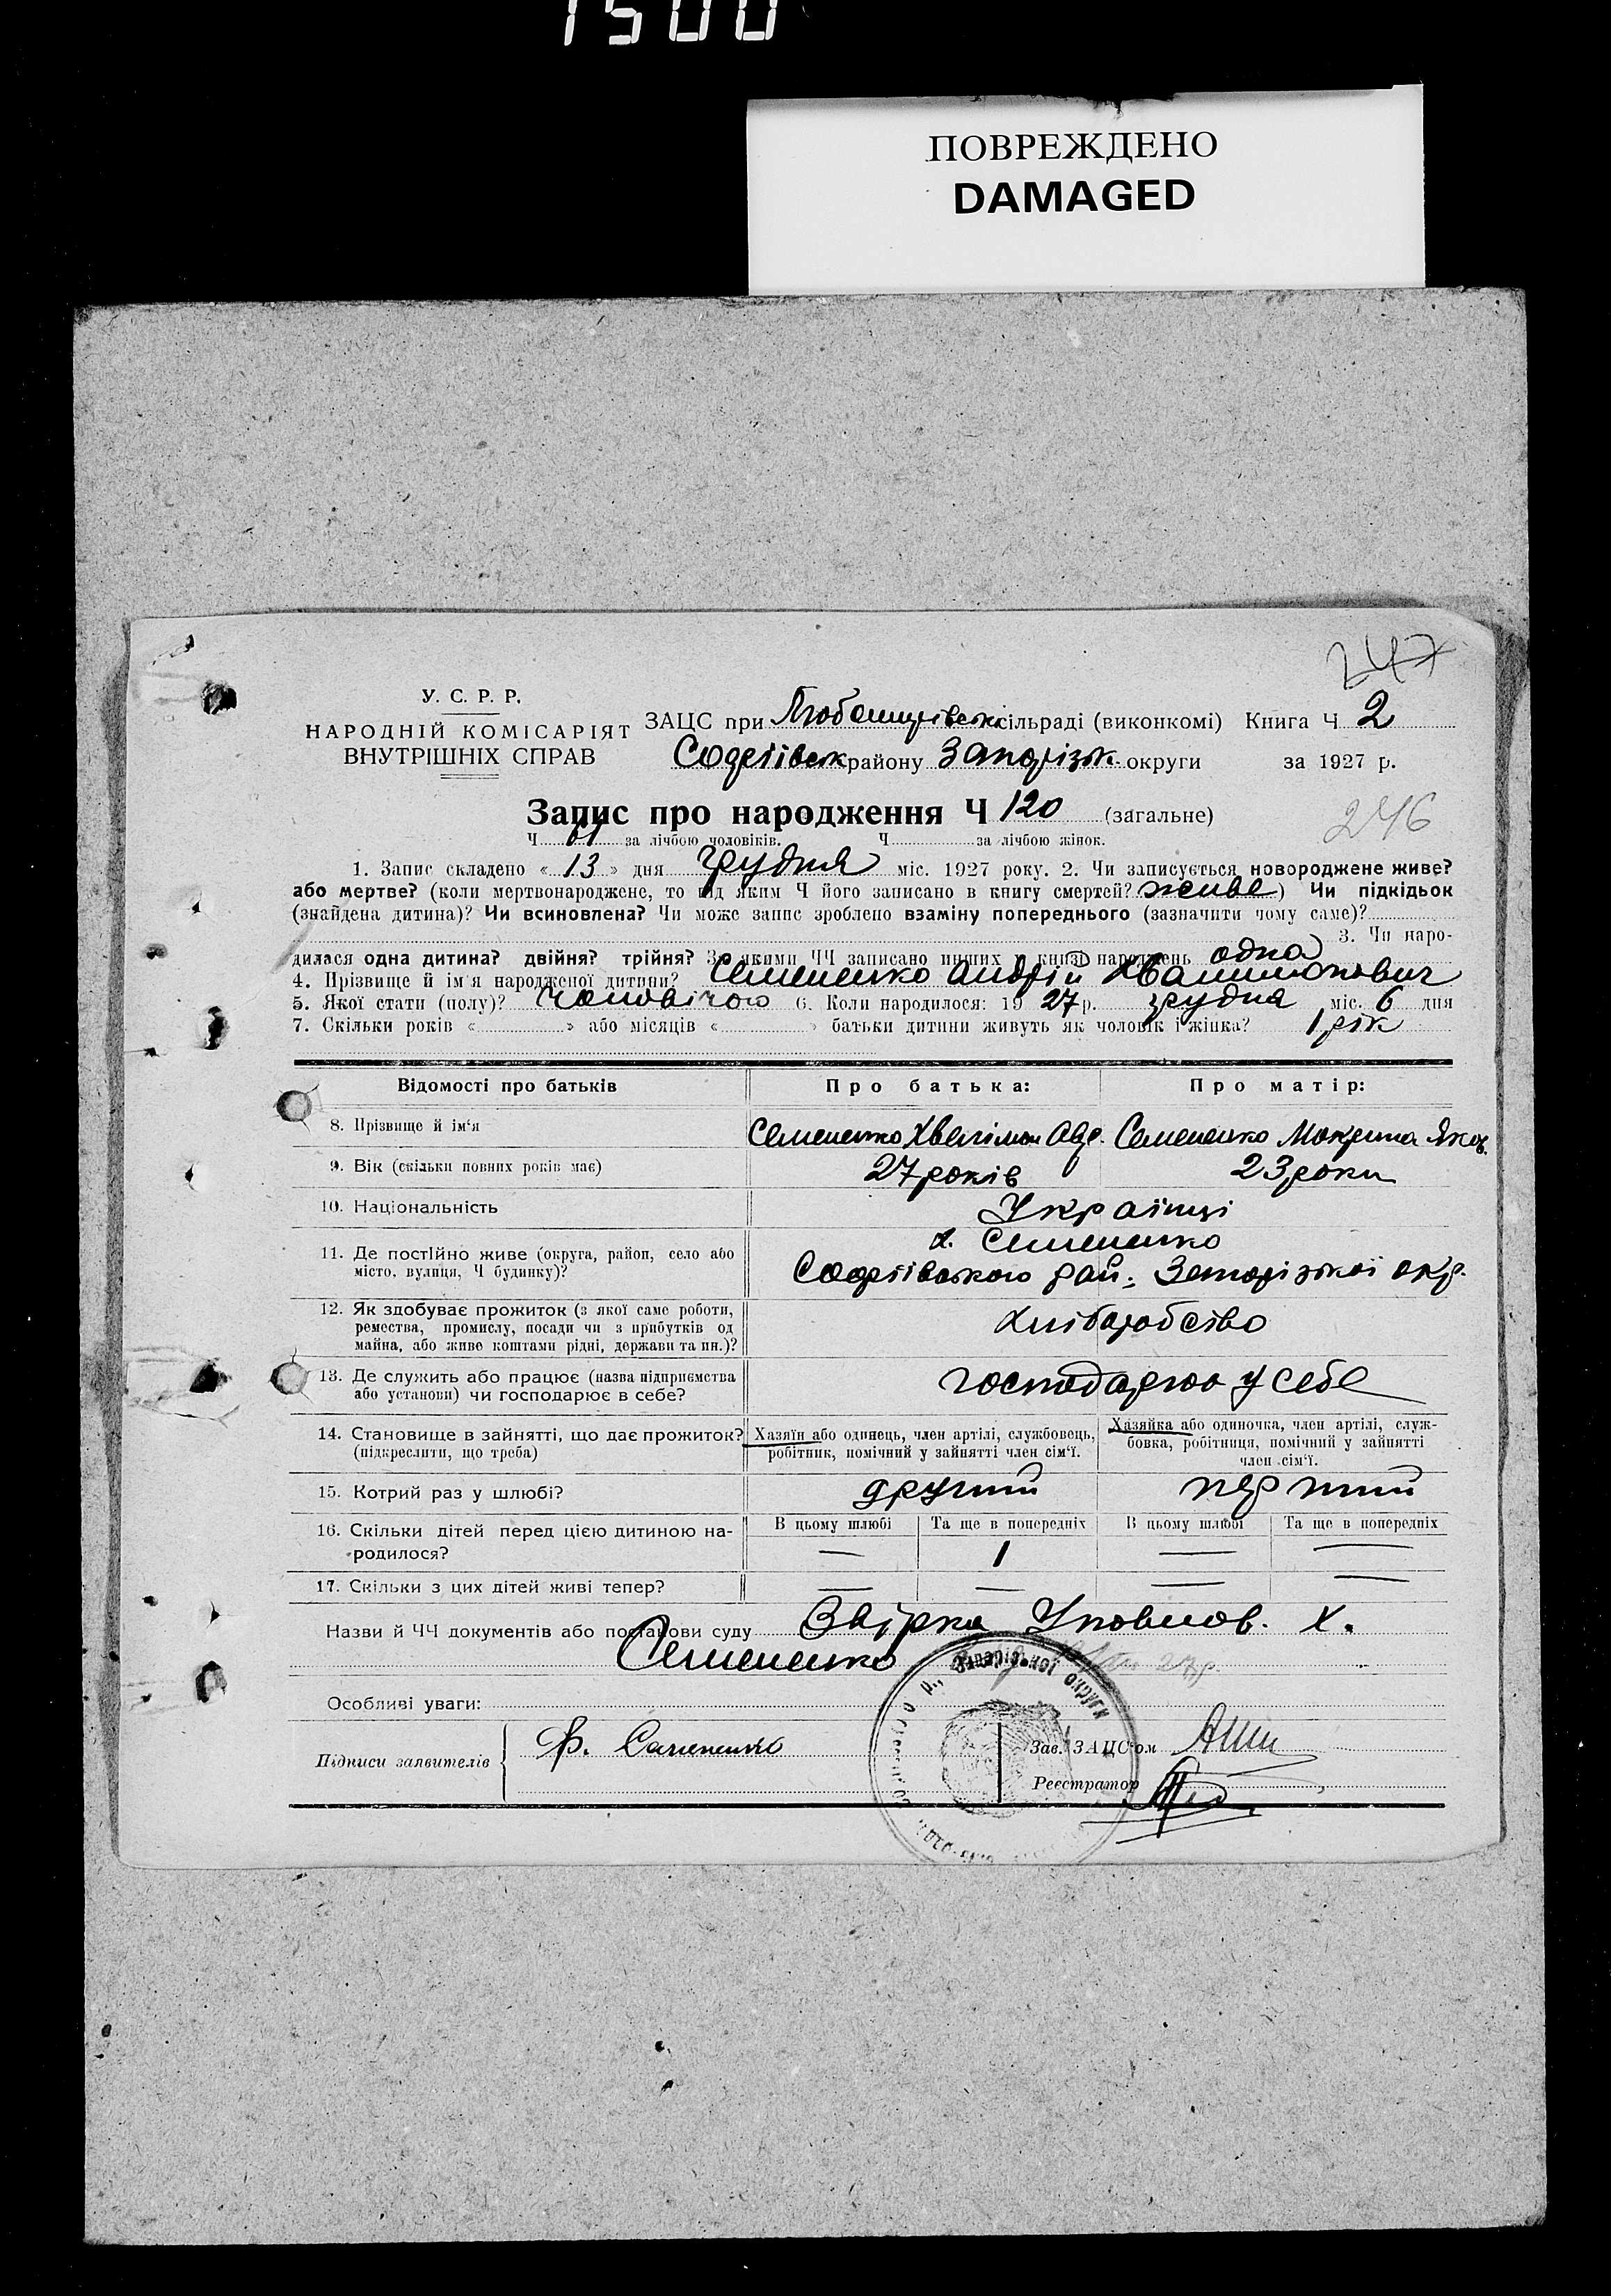 1500
ПОВРЕЖДЕНО
DAMAGED
247
У. С. Р. Р.
НАРОДНІЙ КОМІСАРІЯТ
ВНУТРІШНІХ СПРАВ
ЗАЦС при сільраді (виконкомі) Книга Ч 2
району Запорізьк. округи за 1927 р.
Запис про народження Ч 120 (загальне)
246
Ч 61 за лічбою чоловіків. Ч за лічбою жінок.
1. Запис складено « 13 » дня грудня міс. 1927 року. 2. Чи записується новороджене живе?
або мертве? (коли мертвонароджене, то під яким Ч його записано в книгу смертей? живе) Чи підкідьок
(знайдена дитина)? Чи всиновлена? Чи може запис зроблено взаміну попереднього (зазначити чому саме)?
3. Чи наро-
дилася одна дитина? двійня? трійня? За якими ЧЧ записано инших у книзі народжень одна
4. Прізвище й ім'я народженої дитини? Семененко Андрій
5. Якої стати (полу)? чоловічою 6. Коли народилося: 19 27 р. грудня міс. 6 дня
7. Скільки років « » або місяців « » батьки дитини живуть як чоловік і жінка? 1 рік
Відомості про батьків Про батька: Про матір:
8. Прізвище й ім'я Семененко Семененко Мокрина Яков.
9. Вік (скільки повних років має) 27 років 23 роки
10. Національність Українці
11. Де постійно живе (округа, район, село або
місто, вулиця, Ч будинку)?
х. Семененко
рай. Запорізької окр.
12. Як здобуває прожиток (з якої саме роботи,
ремества, промислу, посади чи з прибутків од
майна, або живе коштами рідні, держави та ин.)?
хліборобство
13. Де служить або працює (назва підприємства
або установи) чи господарює в себе?
господарюю у себе
14. Становище в зайнятті, що дає прожиток?
(підкреслити, що треба)
Хазяїн або одинець, член артілі, службовець,
робітник, помічний у зайнятті член сім'ї.
Хазяйка або одиночка, член артілі, служ-
бовка, робітниця, помічний у зайнятті
член сім'ї.
15. Котрий раз у шлюбі? другий перший
16. Скільки дітей перед цією дитиною на-
родилося?
В цьому шлюбі Та ще в попередніх В цьому шлюбі Та ще в попередніх
— 1 — —
17. Скільки з цих дітей живі тепер? — — — —
Назви й ЧЧ документів або постанови суду Х.
Семененко
Запорізької округи
Особливі уваги:
Підписи заявителів Зав. ЗАЦС'ом
Реєстратор